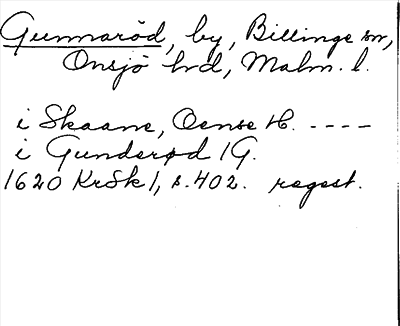 Gunnaröd, by, Billinge sn,
Onsjö hrd, Malm. l.
i Skaane, Oense H. ----
i Gunderød 1G.
1620 KrSk1, s. 402. regest.